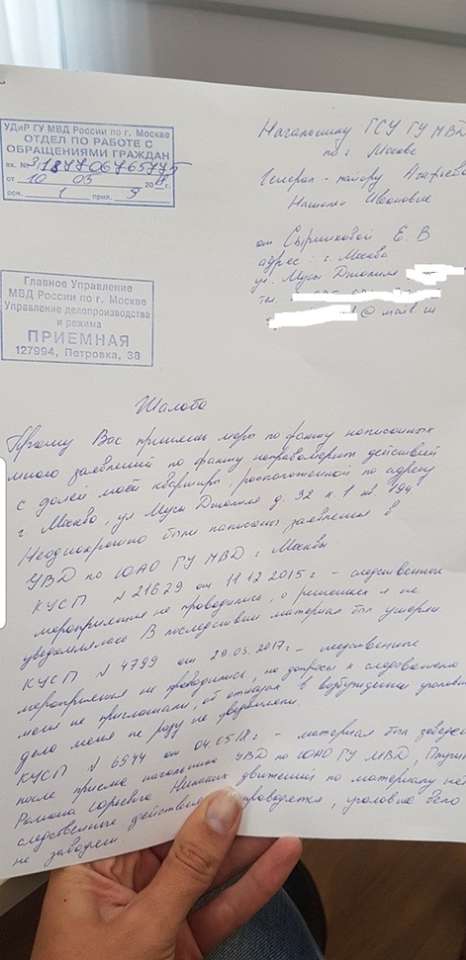 УДиР ГУ МВД России по г. Москве
ОТДЕЛ ПО РАБОТЕ С
ОБРАЩЕНИЯМИ ГРАЖДАН
вх. №3/187706765775
от 10 05 20 г.
осн. 1 прил. 9
Главное Управление
МВД России по г. Москве
Управление делопроизводства
и режима
ПРИЕМНАЯ
127994, Петровка, 38
Начальнику ГСУ ГУ МВД
по г. Москве
Генерал-майору Агафьево
Наталье Ивановне
от Е. В
адрес: г. Москва
ул. Мусы Джалиля
тел.
@mail.ru
Жалоба
Прошу Вас принять меры по факту написанных
мною заявлений по факту неправомерных действий
с долей моей квартиры, расположенной по адресу
г. Москва, ул Мусы Джалиля д. 32 к 1 кв 194
Неоднократно были написаны заявления в
УВД по ЮАО ГУ МВД г. Москвы
КУСП N 21629 от 11.12.2015г - следственные
мероприятия не проводились, о решениях я не
уведомлялась В последствии материал был утерян
КУСП N 4799 от 29.03.2017г - следственные
мероприятия не проводились, на допросы к следователю
меня не приглашали, об отказах в возбуждении уголовн
дела меня не разу не уведомляли.
КУСП N 6544 от 04.0518г - материал был заведен
после приема начальника УВД по ЮАО ГУ МВД,
Романа Юрьевича Никаких движений по материалу не
следственные действия проводятся, уголовное дело
не заведен